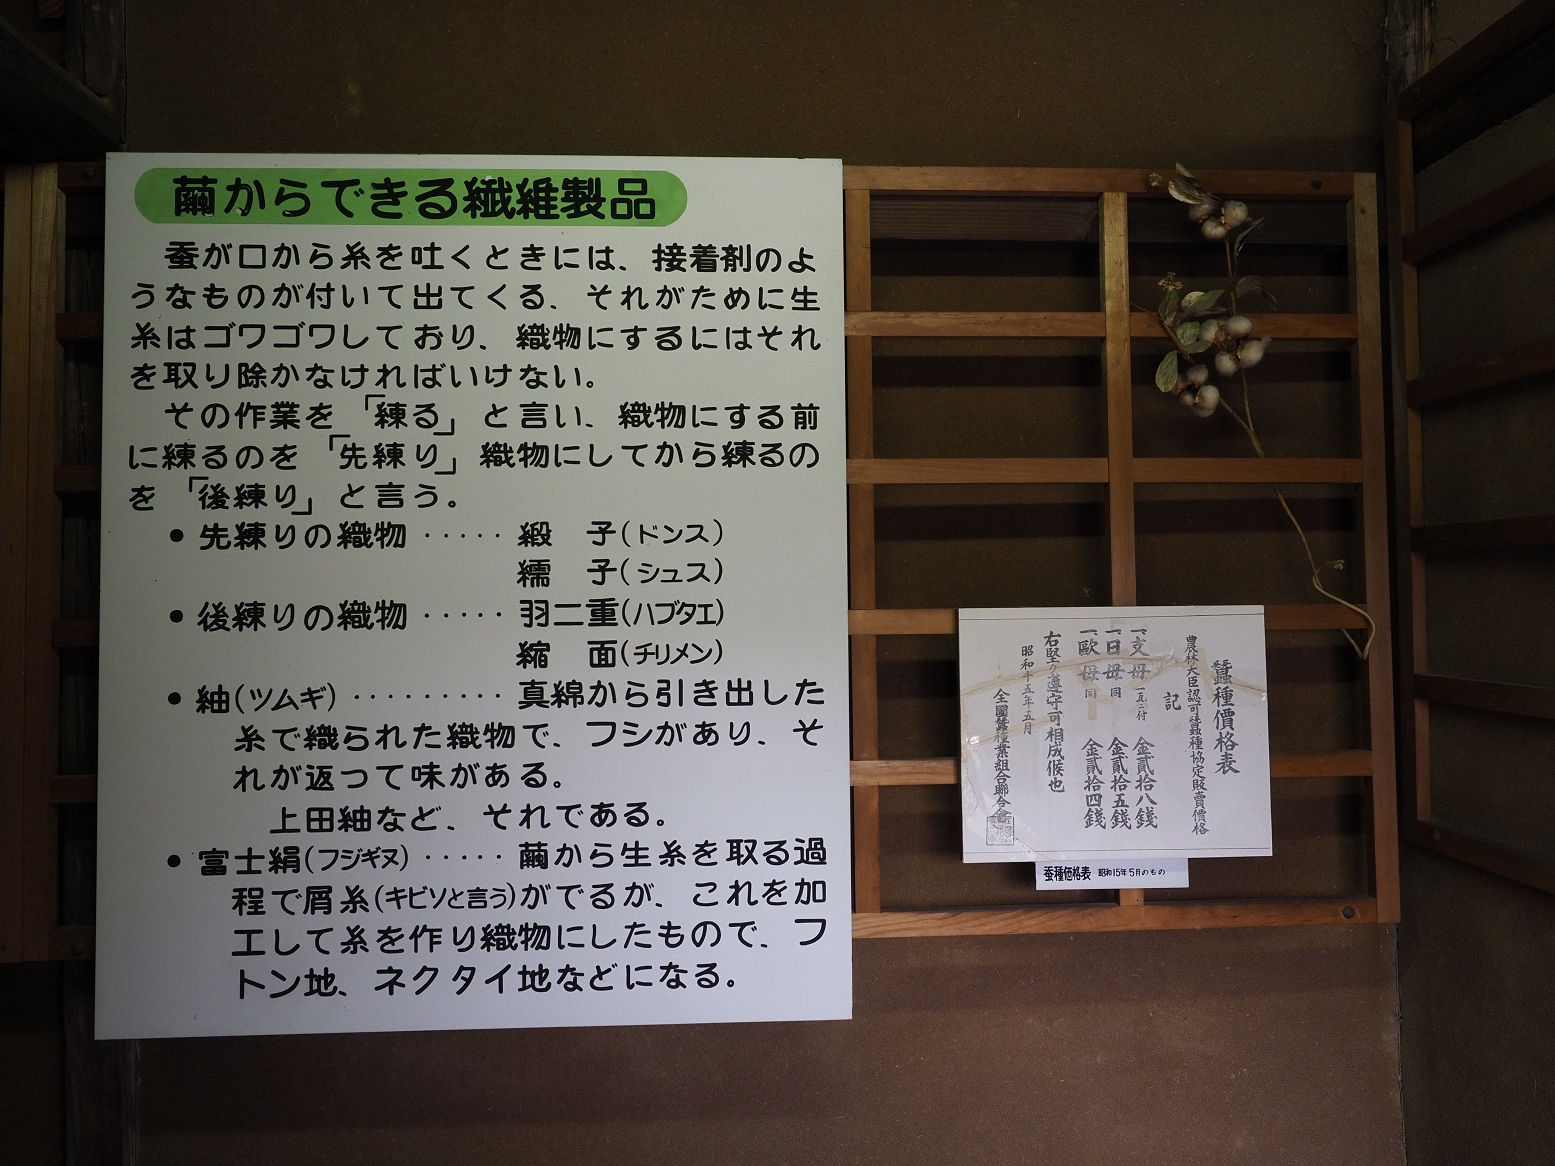 繭からできる繊維製品
蚕が口から糸を吐くときには、接着剤のよ
うなものが付いて出てくる、それがために生
糸はゴワゴワしており、織物にするにはそれ
を取り除かなければいけない。
その作業を「練る」と言い、織物にする前
に練るのを「先練り」織物にしてから練るの
を「後練り」と言う。
•先練りの織物 ····· 緞　子(ドンス)
繻　子(シュス)
•後練りの織物 ····· 羽二重(ハブタエ)
縮　面(チリメン)
•紬(ツムギ) ········· 真綿から引き出した
糸で織られた織物で、フシがあり、そ
れが返って味がある。
上田紬など、それである。
•富士絹(フジギヌ) ····· 繭から生糸を取る過
程で屑糸(キビソと言う)がでるが、これを加
工して糸を作り織物にしたもので、フ
トン地、ネクタイ地などになる。
蠶種價格表
農林大臣認可蠶種協定販賣價格
記
一、支母 一瓦ニ付 金貳拾八錢
一、日母 同 金貳拾五錢
一、歐母 同 金貳拾四錢
右堅ク遵守可相成候也
昭和十五年五月
全國蠶種業組合聯合會
蚕種価格表 昭和15年5月のもの